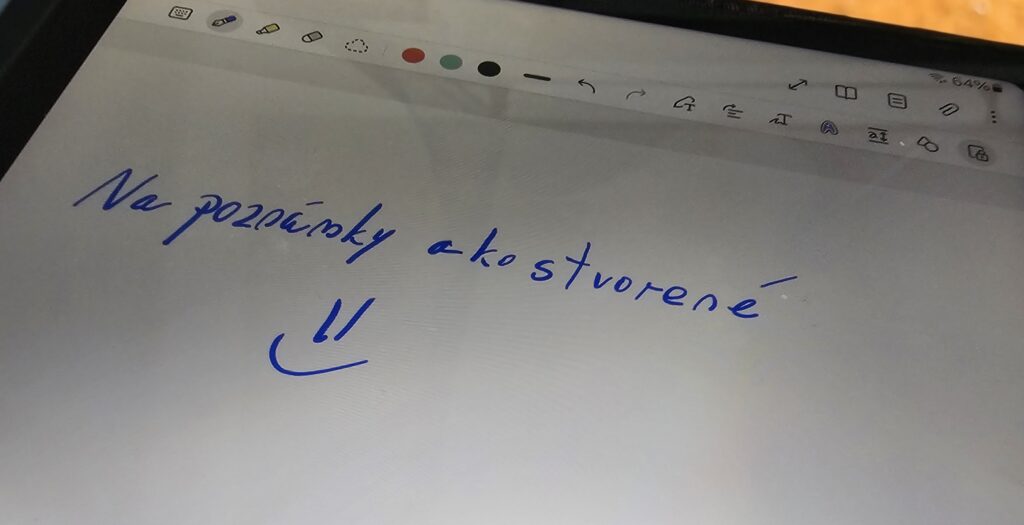 64%
Na poznámky ako stvorené